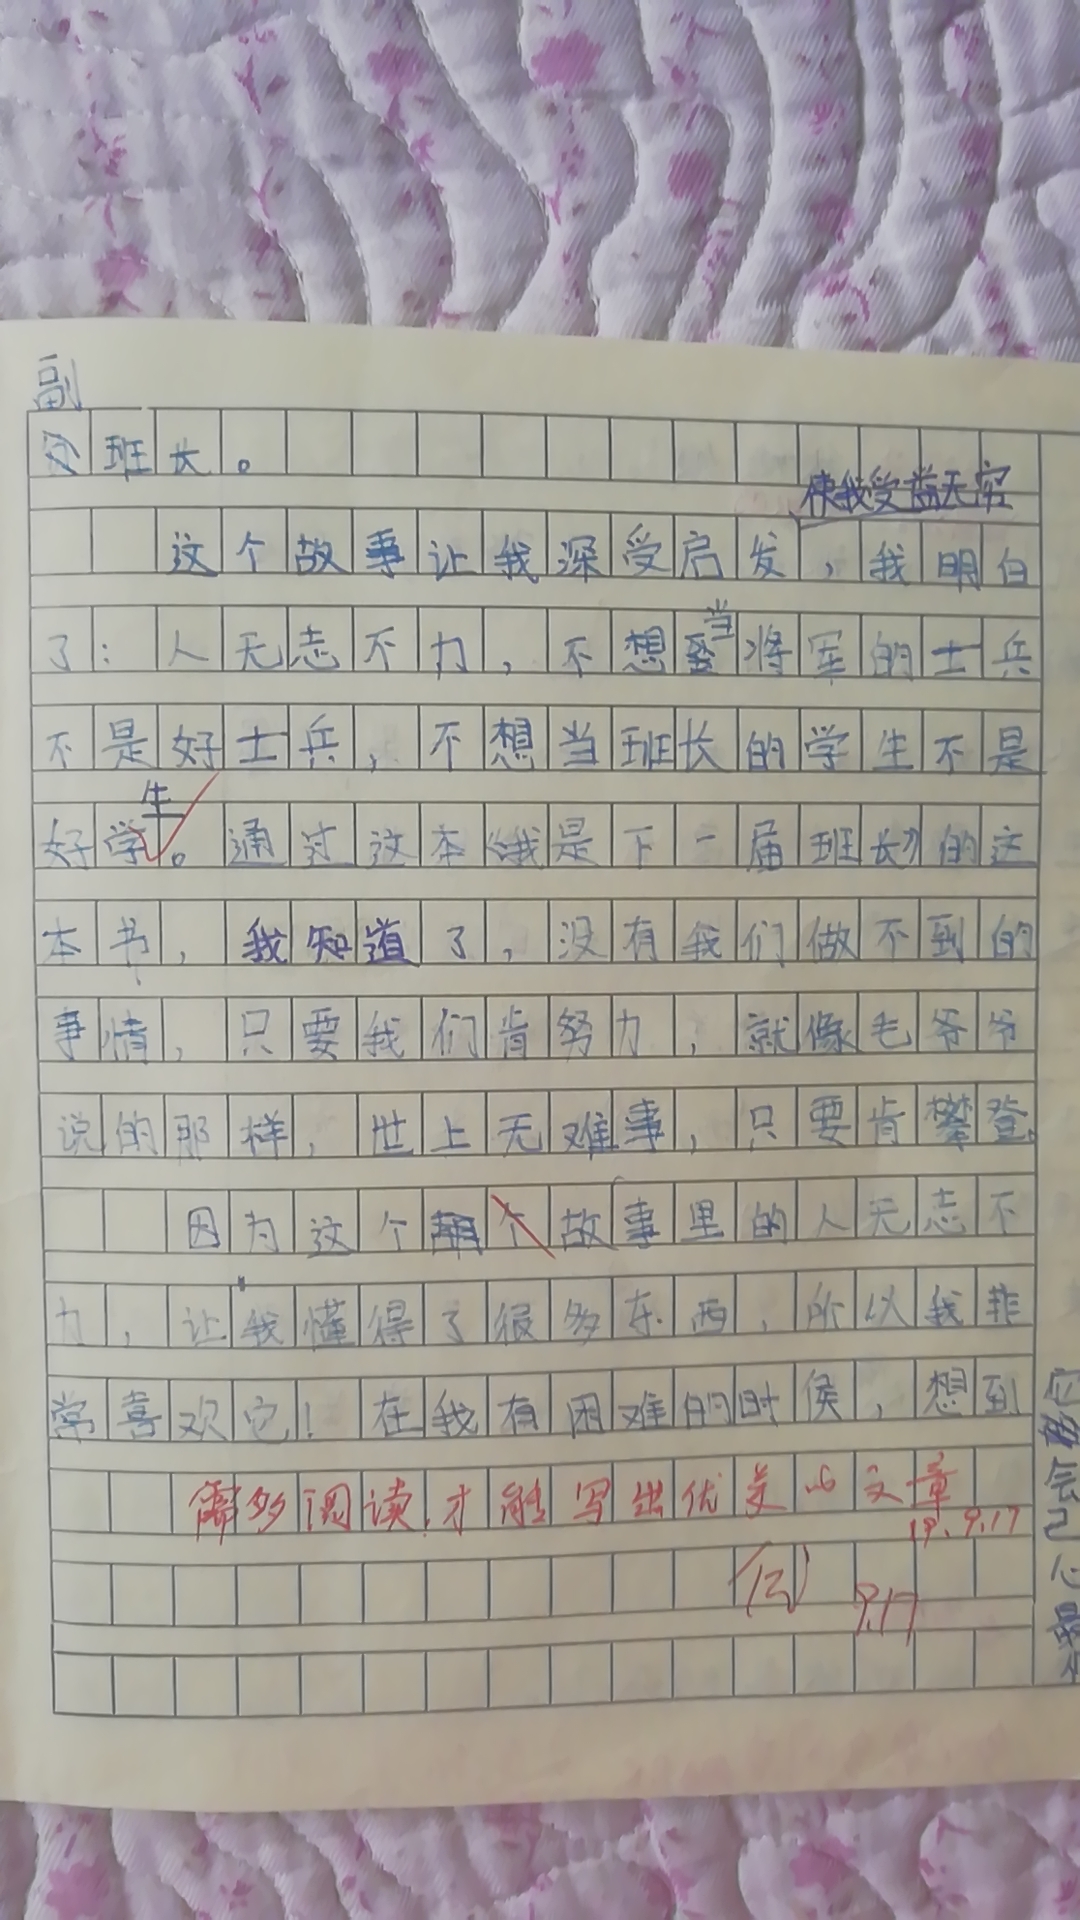 副
班长。
使我受益无穷
这个故事让我深受启发，我明白
了：人无志不力，不想当将军的士兵
不是好士兵，不想当班长的学生不是
好学生。通过这本《我是下一届班长》的这
本书，我知道了，没有我们做不到的
事情，只要我们肯努力，就像毛爷爷
说的那样，世上无难事，只要肯攀登。
因为这个个故事里的人无志不
力，让我懂得了很多东西，所以我非
常喜欢它！在我有困难的时侯，想到
需多阅读，才能写出优美的文章
19.9.17
9.17
它
会
己
心
最